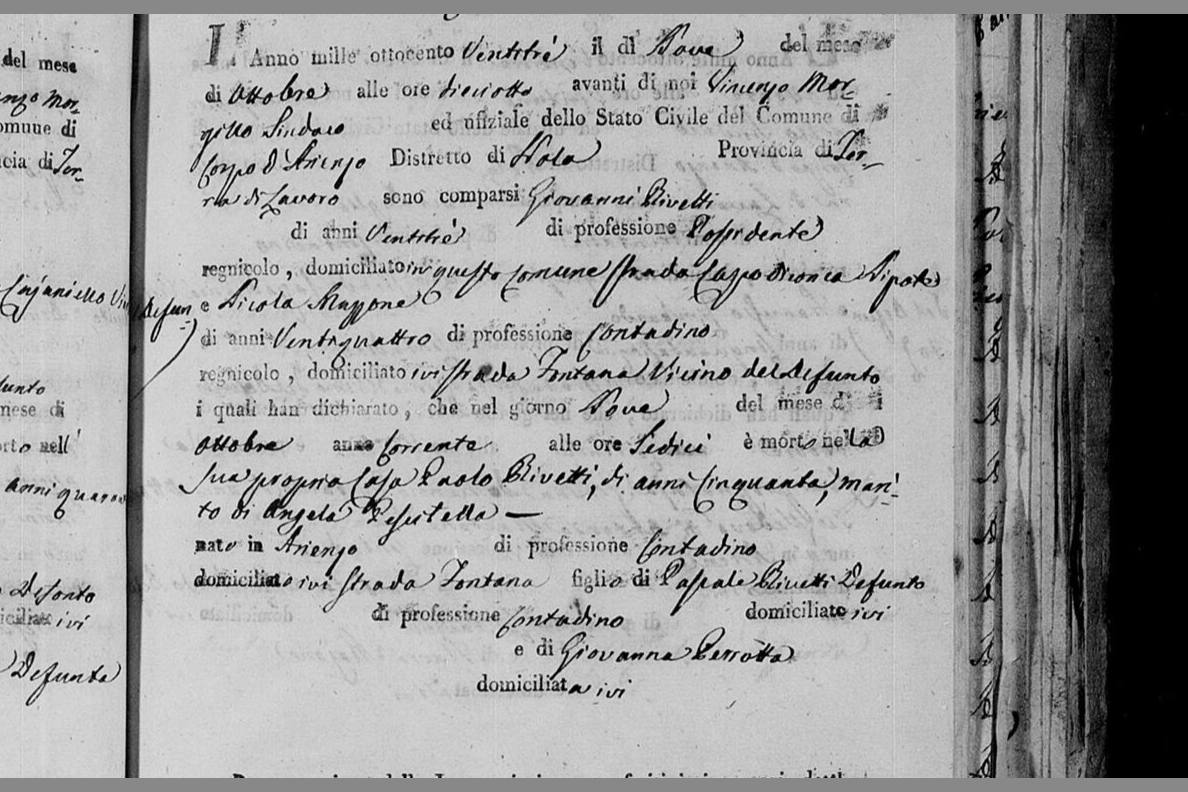 L'Anno mille ottocento Ventitrè il dì Nove del mese
di Ottobre alle ore dieciotto avanti di noi Vincenzo Mor-
gillo Sindaco ed ufiziale dello Stato Civile del Comune di
Corpo d'Arienzo Distretto di Nola Provincia di Ter-
ra di Lavoro sono comparsi Giovanni Rivetti
di anni Ventitrè di professione Possidente
regnicolo, domiciliato in questo Comune Strada Capo di conca Nipote
del Defun- e Nicola Mazzone
di anni Ventiquattro di professione Contadino
regnicolo, domiciliato ivi Strada Fontana Vicino del defunto
i quali han dichiarato, che nel giorno Nove del mese di
Ottobre anno Corrente alle ore Sedici è morto nella
sua propria Casa Paolo Rivetti, di anni Cinquanta, mari-
to di Angela Pescitella —
nato in Arienzo di professione Contadino
domiciliato ivi Strada Fontana figlio di Pasquale Rivetti Defunto
di professione Contadino domiciliato ivi
e di Giovanna Perrotta
domiciliata ivi
del mese
enzo Mor-
omune di
ncia di Ter-
funto
mese di
orto nell'
Defonto
iciliato ivi
Defunta